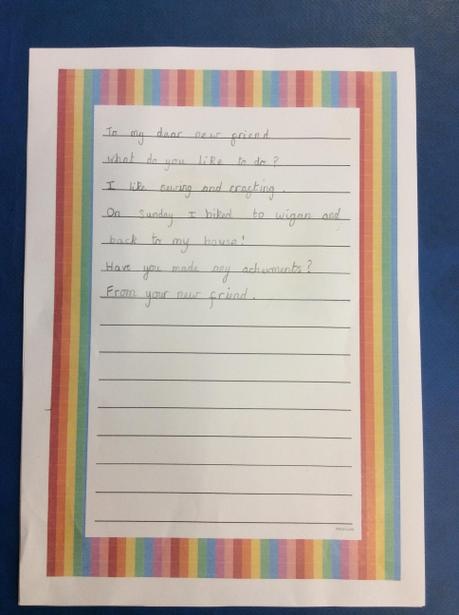 To my dear new friend
What do you like to do?
I like swing and crafting.
On Sunday I biked to wigan and
back to my house!
Have you made any achevments?
From your new friend.